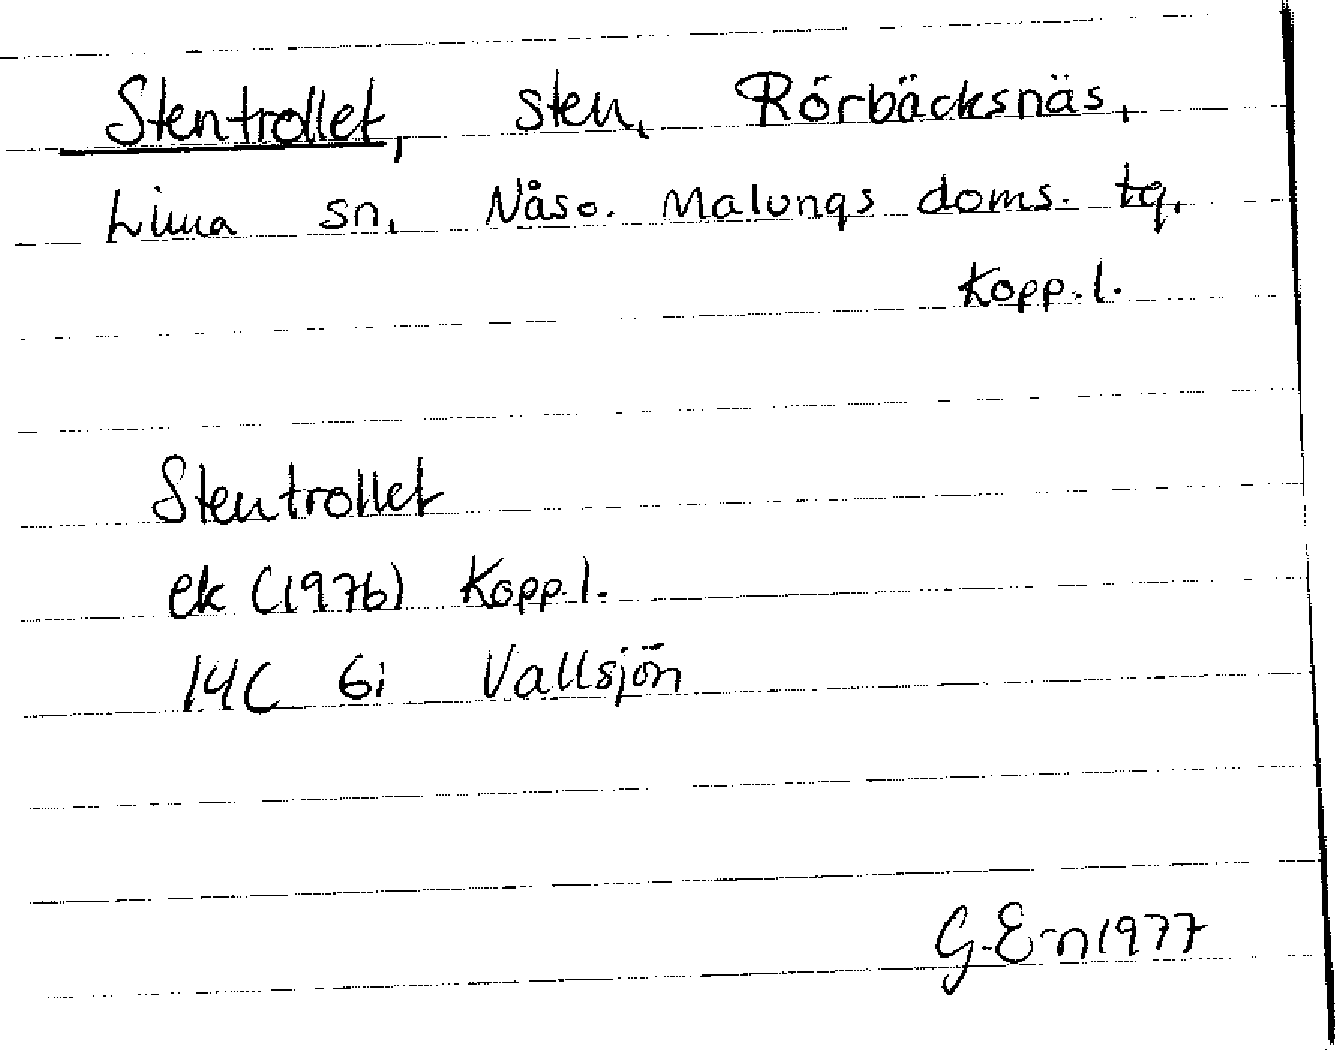 Stentrollet, sten, Rörbäcksnäs,
Lima sn, Nås o. Malungs doms. tg,
Kopp. l.
Stentrollet
ek (1976) Kopp. l.
14C 6i Vallsjön
G. E-n 1977